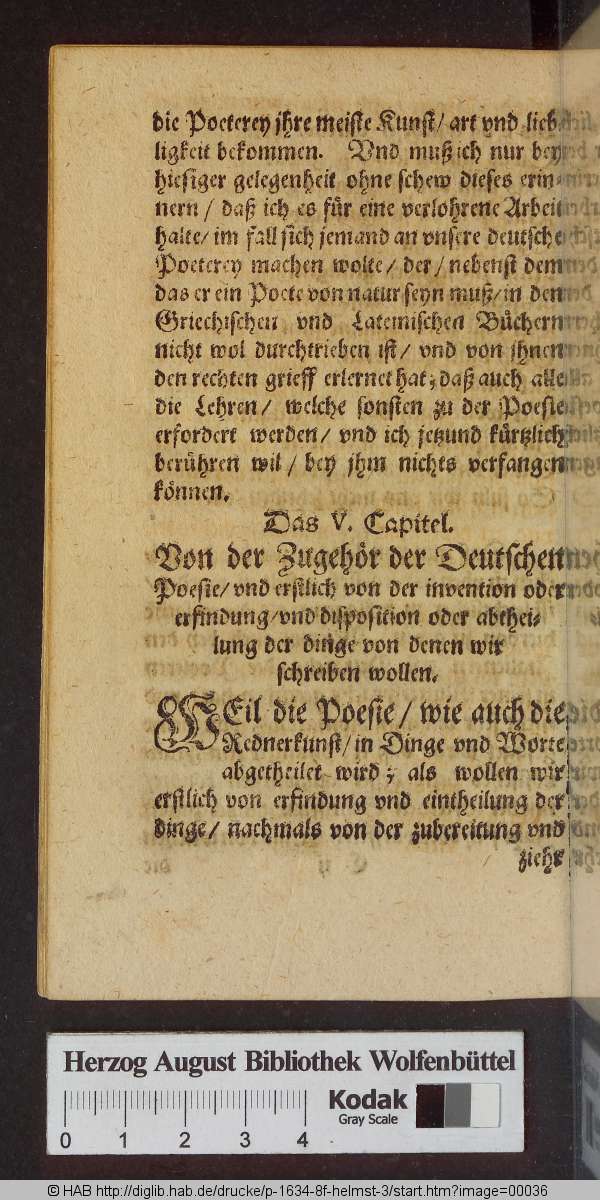 die Poeterey jhre meiste Kunst/ art vnd lieb
ligkeit bekommen. Vnd muß ich nur bey
hiesiger gelegenheit ohne schew dieses erin-
nern/ daß ich es für eine verlohrene Arbeit
halte/ im fall sich jemand an vnsere deutsche
Poeterey machen wolte/ der/ nebenst dem
das er ein Poete von natur seyn muß/ in den
Griechischen vnd Lateinischen Büchern
nicht wol durchtrieben ist/ vnd von jhnen
den rechten grieff erlernet hat; daß auch alle
die Lehren/ welche sonsten zu der Poesie
erfordert werden/ vnd ich jetzund kürtzlich
berühren wil/ bey jhm nichts verfangen
können.
Das V. Capitel.
Von der Zugehör der Deutschen
Poesie/ vnd erstlich von der invention oder
erfindung/ vnd disposition oder abthei-
lung der dinge von denen wir
schreiben wollen.
WEil die Poesie/ wie auch die
Rednerkunst/ in Dinge vnd Worte
abgetheilet wird; als wollen wir
erstlich von erfindung vnd eintheilung der
dinge/ nachmals von der zubereitung vnd
ziehr
Herzog August Bibliothek Wolfenbüttel
Kodak
Gray Scale
0 1 2 3 4
© HAB http://diglib.hab.de/drucke/p-1634-8f-helmst-3/start.htm?image=00036